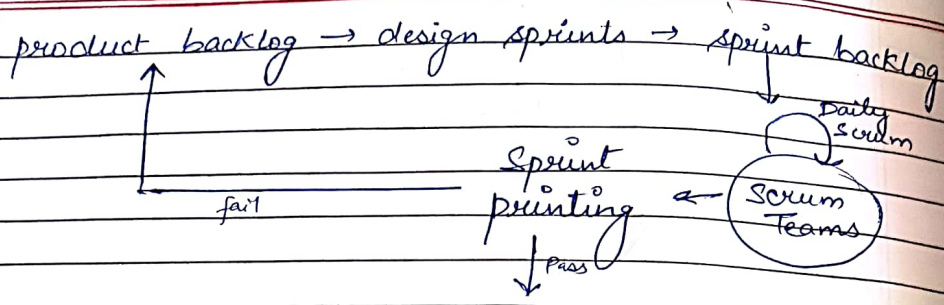 product backlog → design sprints → sprint backlog
Daily
Scrum
Sprint
printing ← Scrum
Teams
fail
Pass